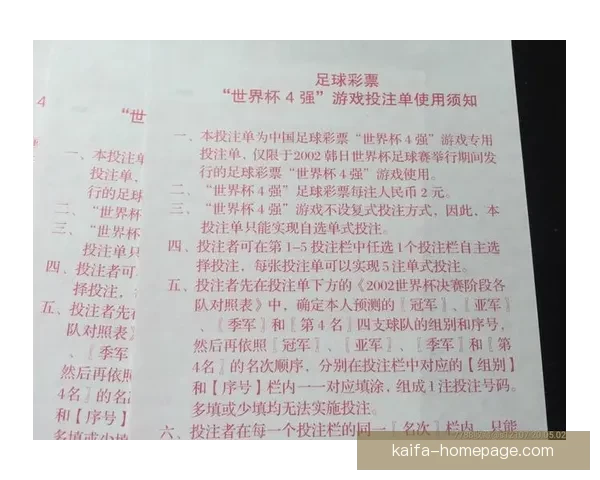 足球彩票
“世界杯 4 强”游戏投注单使用须知
一、本投注单为中国足球彩票“世界杯 4 强”游戏专用
投注单，仅限于2002 韩日世界杯足球赛举行期间发
行的足球彩票“世界杯 4 强”游戏使用。
二、“世界杯 4 强”足球彩票每注人民币 2 元。
三、“世界杯 4 强”游戏不设复式投注方式，因此，本
投注单只能实现自选单式投注。
四、投注者可在第 1-5 投注栏中任选 1个投注栏自主选
择投注，每张投注单可以实现 5 注单式投注。
五、投注者先在投注单下方的《2002世界杯决赛阶段各
队对照表》中，确定本人预测的〖冠军〗、〖亚军〗
、〖季军〗和〖第 4 名〗四支球队的组别和序号，
然后再依照〖冠军〗、〖亚军〗、〖季军〗和〖第
4名〗的名次顺序，分别在投注栏中对应的【组别】
和【序号】栏内一一对应填涂，组成 1 注投注号码。
多填或少填均无法实施投注。
六、投注者在每一个投注栏的同一〖名次〗栏内，只能
4
“世
一、本投注单
投注单，
行的足球
二、“世界杯
三、“世界杯
投注单只
四、投注者可
择投注，
五、投注者先在
队对照表》
、〖季军
然后再依照
4名〗的名
和【序号】
多填或少填
kaifa-homepage.com